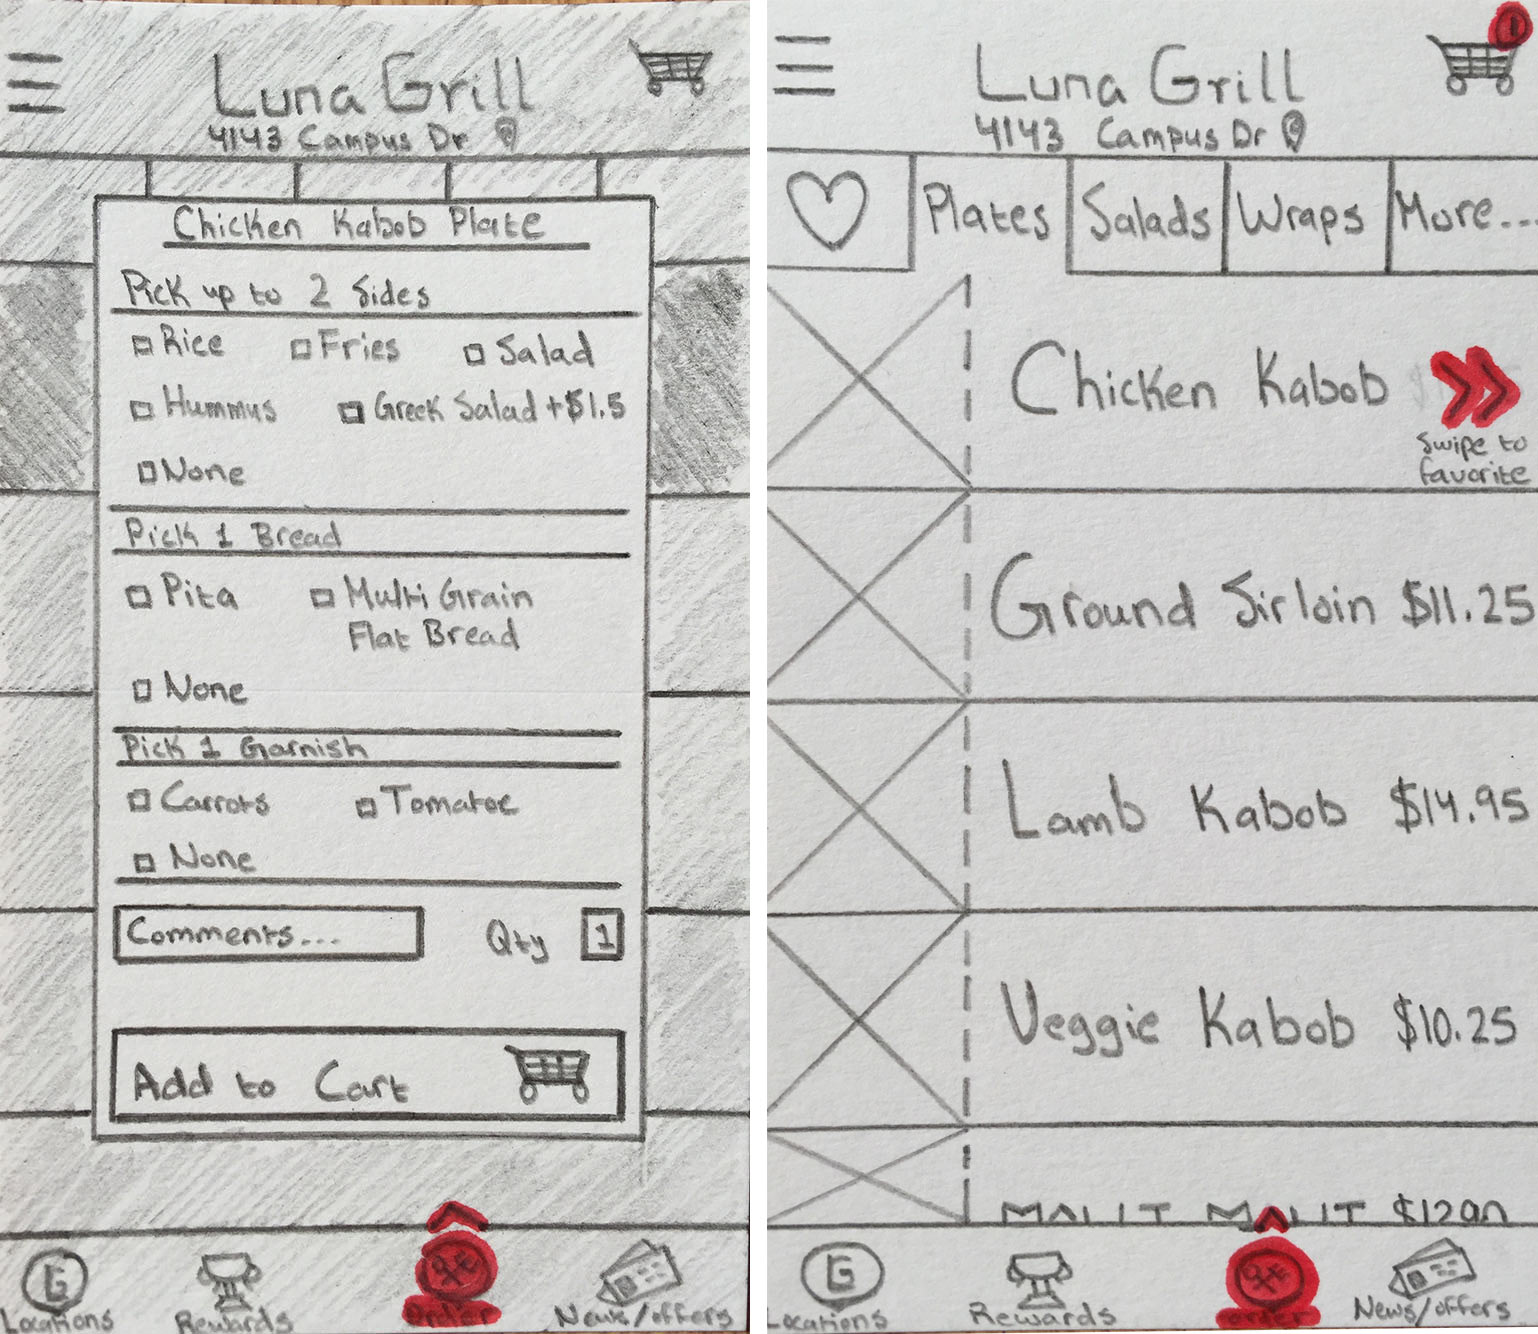 Luna Grill
4143 Campus Dr
Chicken Kabob Plate
Pick up to 2 Sides
Rice Fries Salad
Hummus Greek Salad +$1.5
None
Pick 1 Bread
Pita Multi Grain
Flat Bread
None
Pick 1 Garnish
Carrots Tomatoe
None
Comments... Qty 1
Add to Cart
G
Locations Rewards Order News/offers
1
Luna Grill
4143 Campus Dr
Plates Salads Wraps More...
Chicken Kabob
Swipe to
favorite
Ground Sirloin $11.25
Lamb Kabob $14.95
Veggie Kabob $10.25
G
Locations Rewards Order News/offers